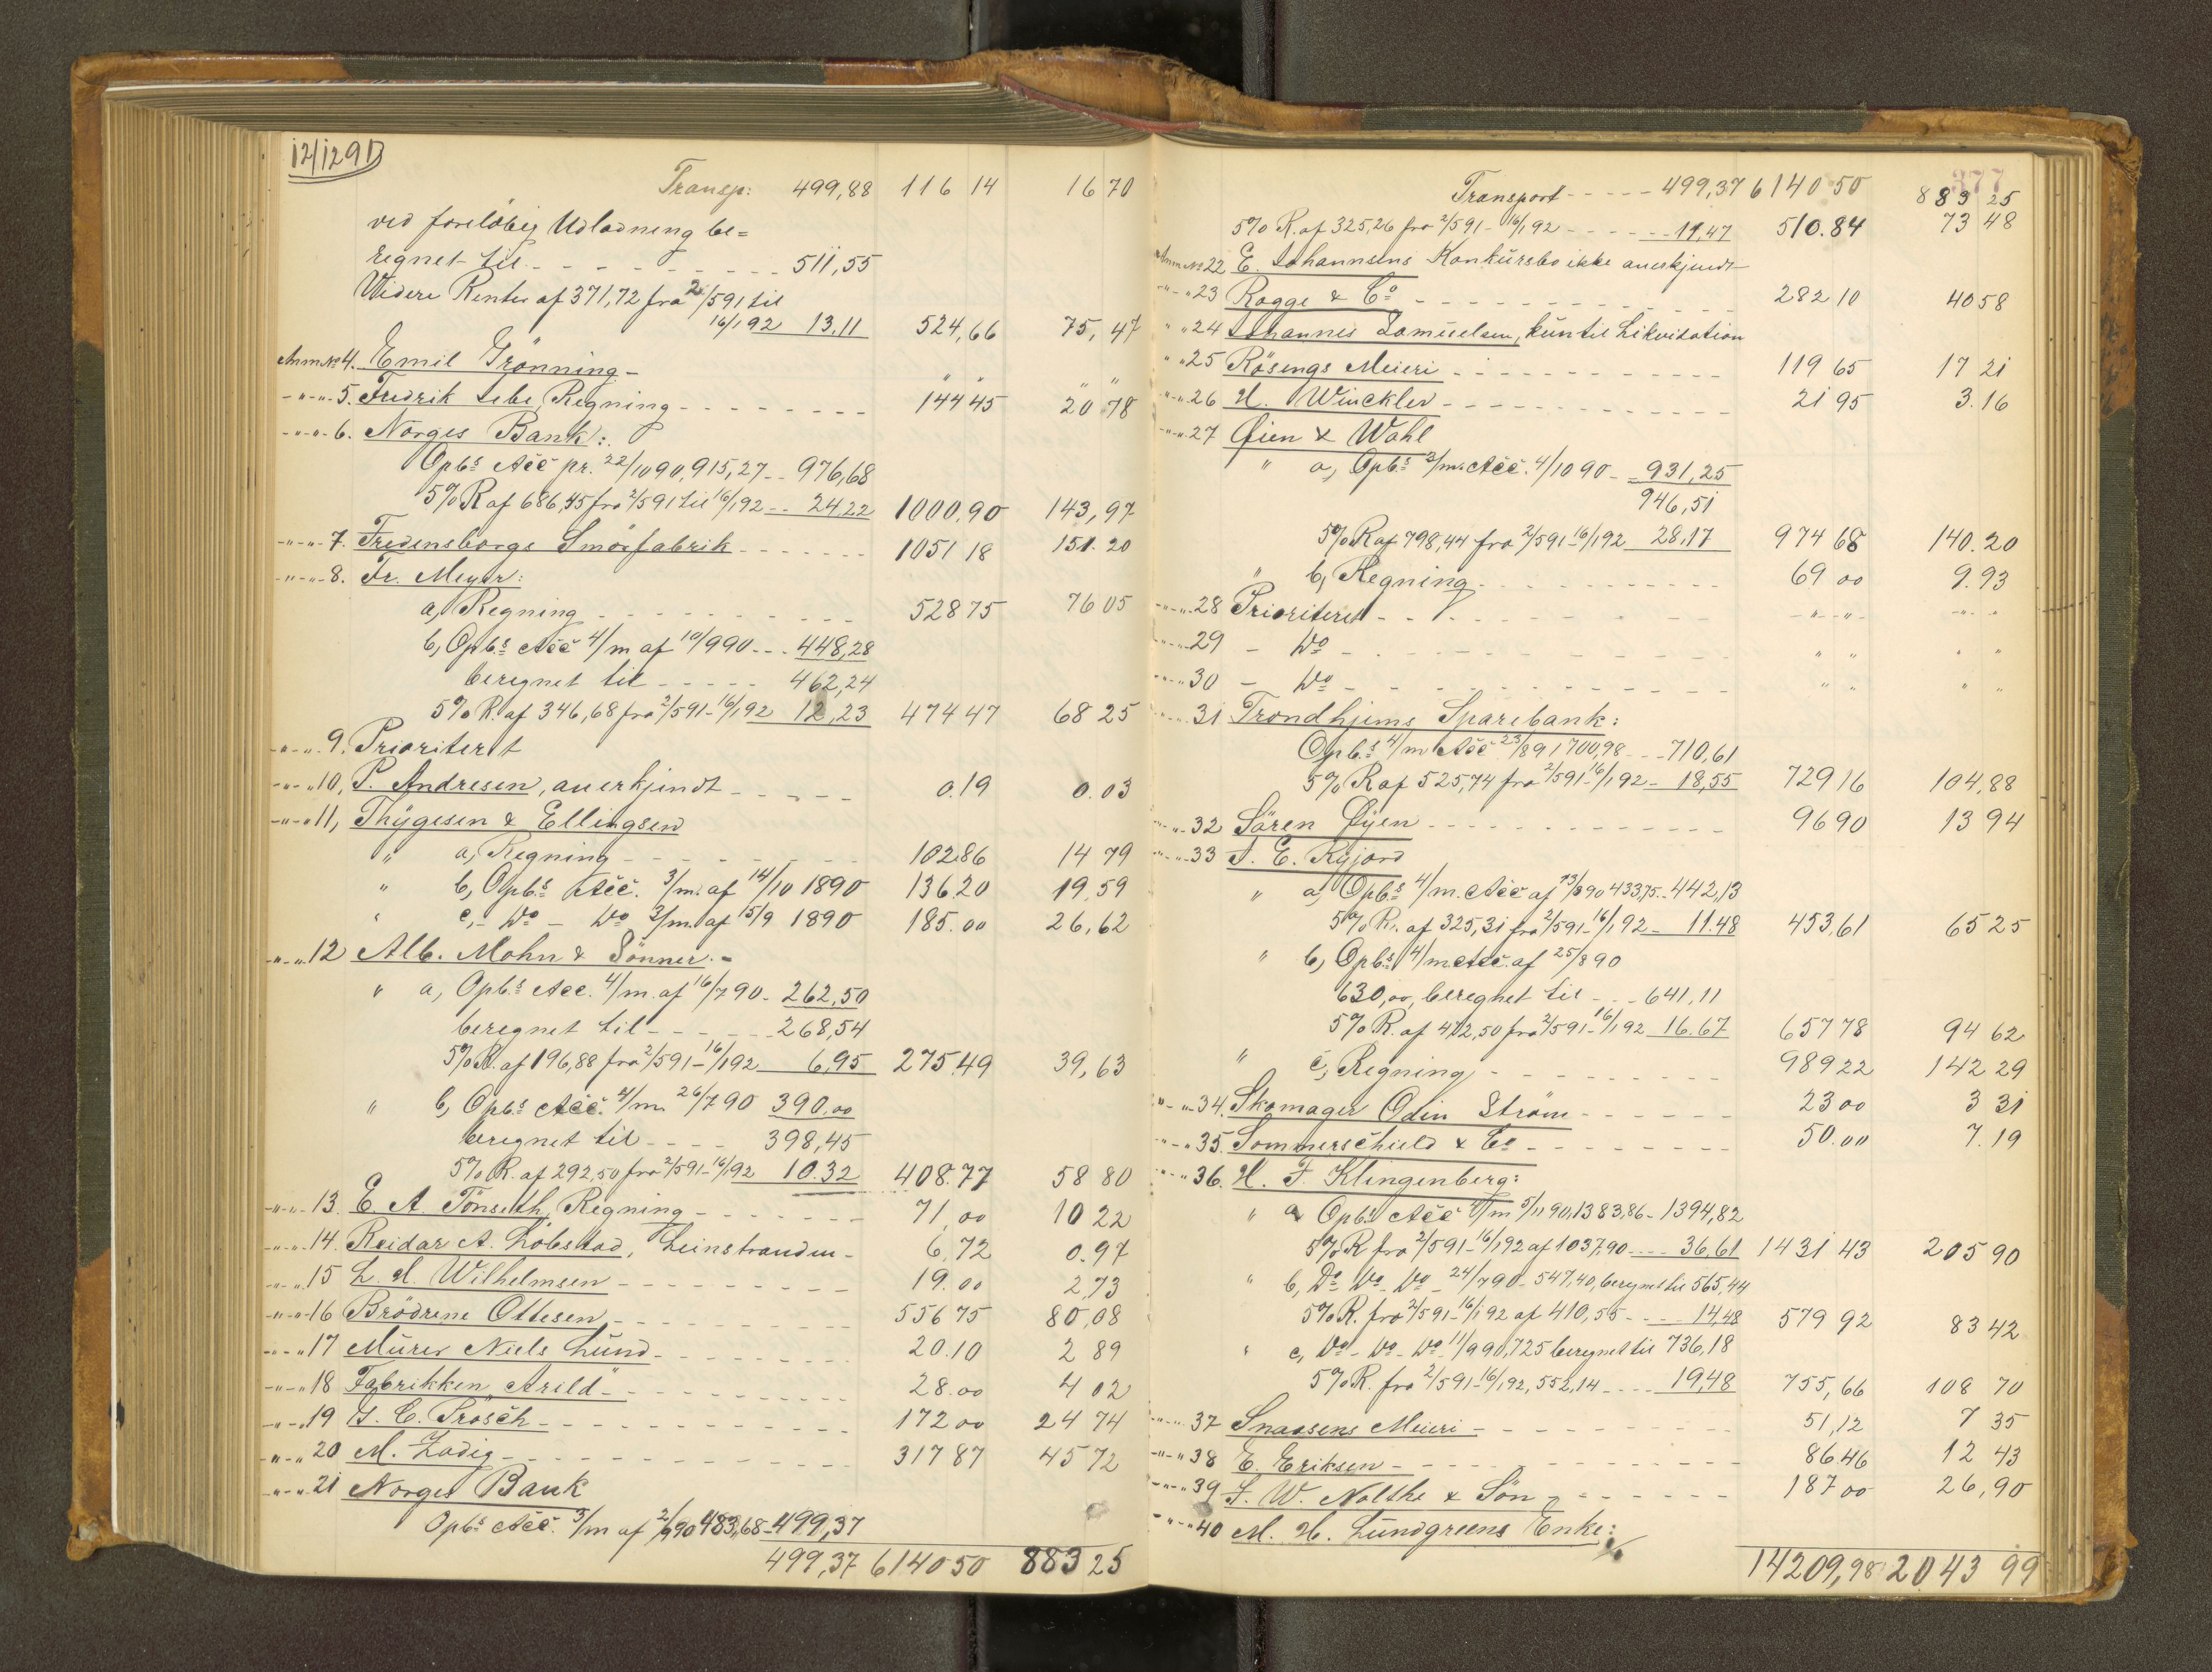 12/1291
Transp: 499,88 116 14 16 70
ved foreløbig Udlodning be=
regnet til - - - 511,55
Videre Renter af 371,72 fra 2/591 til
16/192 13.11 524,66 75,47
Anm. No 4. Emil Grønning - " " " "
-"-"- 5. Fredrik Lebe, Regning - - - 144 45 20 78
-"-"- 6. Norges Bank:
Opbs Acc pr. 22/1090, 915,27 - - 976,68
5% R af 686,45 fra 2/591 til 16/192 - - 24.22 1000.90 143,97
-"-"- 7. Fredensborgs Smørfabrik - - - 1051 18 151.20
-"-"- 8. Fr. Meyer:
a, Regning - - - 528 75 76 05
b, Opbs Acc 4/m af 10/990 - - - 448,28
beregnet til - - - 462,24
5% R. af 346,68 fra 2/591 - 16/192 12,23 474 47 68 25
-"-"- 9. Prioriteret
-"-"- 10, P. Andresen, anerkjendt - - - 0.19 0.03
-"-"- 11, Thygesen & Ellingsen
" a, Regning - - - 102.86 14 79
" b, Opbs Acc. 3/m. af 14/10 1890 136.20 19.59
" c, - Do - Do 3/m. af 15/9 1890 185.00 26,62
-"-"- 12 Alb. Mohn & Sönner. -
" a, Opbs Acc. 4/m. af 16/790 - 262,50
beregnet til - - - 268,54
5% R. af 196,88 fra 2/591 - 16/192 6,95 275.49 39,63
" b, Opbs Acc. 4/m. 26/790 390.00
beregnet til - - - 398,45
5% R. af 292,50 fra 2/591 - 16/192 10.32 408.77 58 80
-"-"- 13. E A. Tönseth, Regning - - - 71,00 10 22
-"-"- 14. Reidar A. Lobstad, Leinstranden - 6,72 0.97
-"-"- 15 L. M. Wilhelmsen - - - 19.00 2,73
-"-"- 16 Brödrene Ottesen - - - 556 75 80,08
-"-"- 17 Murer Niels Lund - - - 20.10 2 89
-"-"- 18 Fabrikken „Arild" - - - 28.00 4 02
-"-"- 19 G. C. Prösch - - - 172 00 24 74
-"-"- 20 M. Zadig - - - 317 87 45 72
-"-"- 21 Norges Bank
Opbs Acc. 3/m af 2/990 483,68 - 499,37
499,37 6140 50 883 25
377
Transport - - - 499,37 6140 50 883 25
5% R. af 325,26 fra 2/591 - 16/192 - - - 11,47 510.84 73 48
Anm No 22 E. Johannsens Konkursbo ikke anerkjendt
-"-"- 23 Rogge & Co - - - 282 10 40 58
" " 24 Johannes Samuelsen, kun til Likvidation
" " 25 Rösengs Meieri - - - 119 65 17 21
-"-"- 26 H. Winckler - - - 21 95 3.16
-"-"- 27 Øien & Wahl
" a, Opbs 3/m. Acc. 4/1090 - - 931,25
946,51
5% R af 798,44 fra 2/591 - 16/192 28,17 974 68 140.20
" b, Regning - - - 69 00 9.93
-"-"- 28 Prioriteret - - - - " - - " - - " - "
-"-"- 29 - Do - - - " " " "
-"-"- 30 - Do - - - " " " "
-"-"- 31 Trondhjems Sparebank:
Opbs 4/m Acc 23/891 700,98 - - - 710,61
5% R af 525,74 fra 2/591 - 16/192 - 18,55 729 16 104,88
-"-"- 32 Sören Øyen - - - 96 90 13 94
-"-"- 33 J. E. Ryjord
" a, Opbs 4/m. Acc af 13/890 433,75 - 442,13
5% R. af 325,31 fra 2/591 - 16/192 - 11.48 453,61 65 25
" b, Opbs 4/m Acc. af 25/890
630,00, beregnet til - - - 641,11
5% R. af 472,50 fra 2/591 - 16/192 16.67 657 78 94 62
" c, Regning - - - 989 22 142 29
-"-"- 34. Skomager Odin Ström - - - 23 00 3 31
-"-"- 35. Sommerschield & Co - - - 50.00 7.19
-"-"- 36. H. F. Klingenberg:
" a Opbs Acc 4/m 5/1190, 1383,86 - 1394,82
5% R fra 2/591 - 16/192 af 1037,90 - - - 36,61 1431 43 205 90
" b, Do Do Do - 24/790 - 547,40, beregnet til 565,44
5% R. fra 2/591 - 16/192 af 410,55 - - - 14,48 579 92 83 42
" c, Do - Do - Do - 11/990, 725 beregnet til 736,18
5% R. fra 2/591 - 16/192, 552,14 - - - 19,48 755,66 108 70
-"-"- 37 Snaasens Meieri - - - 51,12 7 35
-"-"- 38 E. Eriksen - - - 86.46 12 43
-"-"- 39 F. W. Nolthe & Sön - - - 187 00 26,90
-"-"- 40 M. H. Lundgreens Enke:
14209,98 2043 99